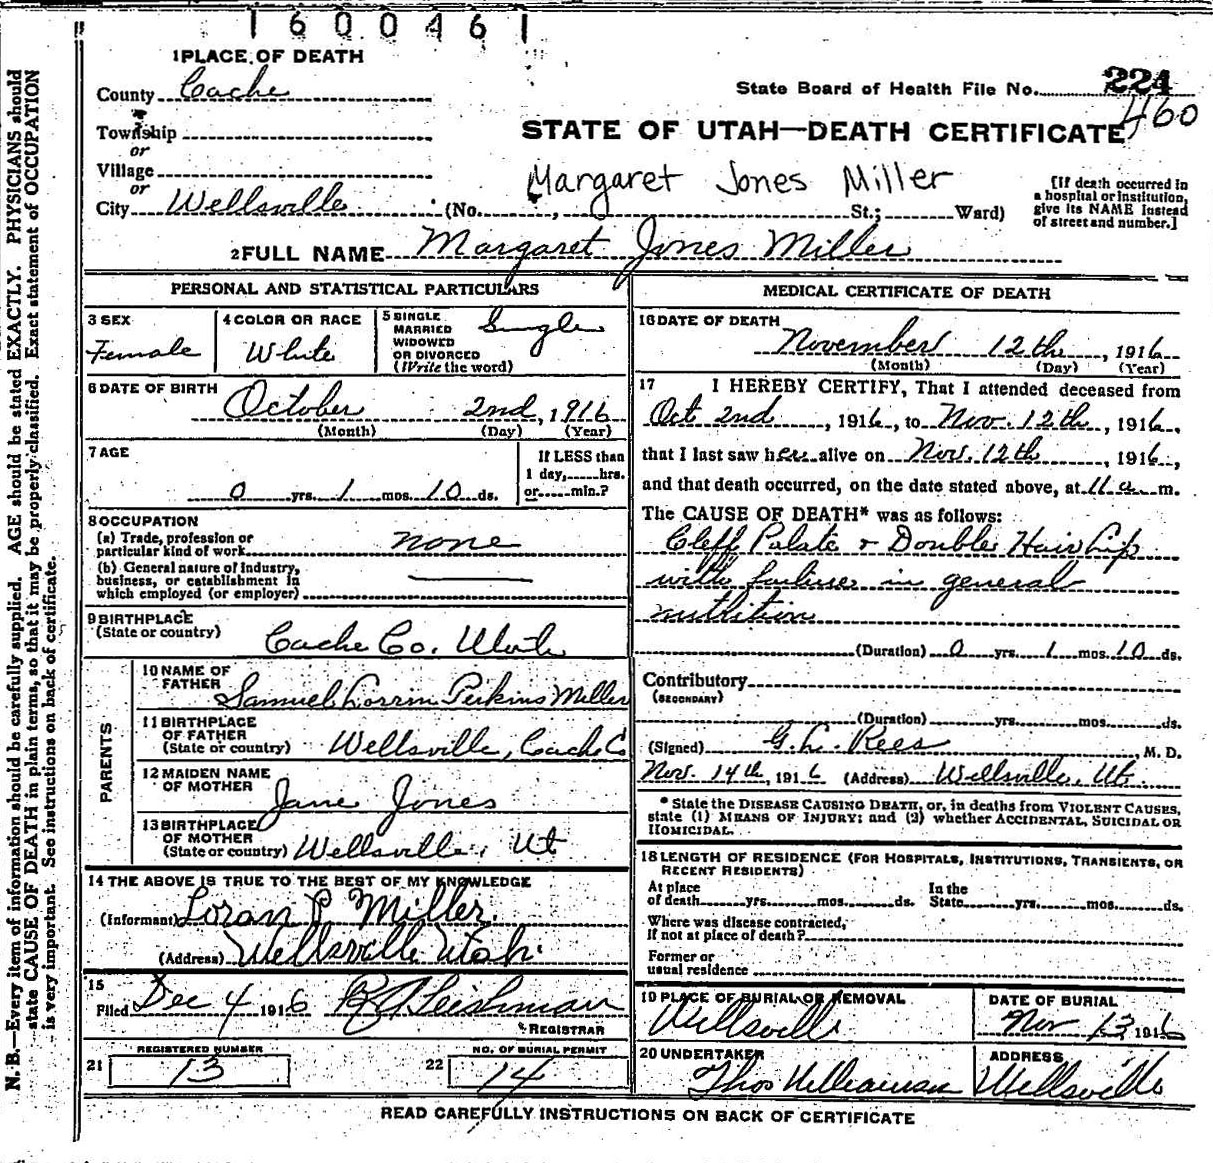 1600461
1 PLACE OF DEATH
County Cache
State Board of Health File No. 224
460
Township
or
STATE OF UTAH—DEATH CERTIFICATE
Village
or
Margaret Jones Miller
City Wellsville (No. , St.; Ward)
[If death occurred in
a hospital or institution,
give its NAME instead
of street and number.]
2 FULL NAME Margaret Jones Miller
PERSONAL AND STATISTICAL PARTICULARS
3 SEX
Female
4 COLOR OR RACE
White
5 SINGLE
MARRIED
WIDOWED
OR DIVORCED
(Write the word)
Single
6 DATE OF BIRTH
October 2nd, 1916
(Month) (Day) (Year)
7 AGE
0 yrs. 1 mos. 10 ds.
If LESS than
1 day, hrs.
or min.?
8 OCCUPATION
(a) Trade, profession or
particular kind of work none
(b) General nature of industry,
business, or establishment in
which employed (or employer)
9 BIRTHPLACE
(State or country) Cache Co. Utah
PARENTS
10 NAME OF
FATHER Samuel Lorrin Perkins Miller
11 BIRTHPLACE
OF FATHER
(State or country) Wellsville, Cache Co
12 MAIDEN NAME
OF MOTHER Jane Jones
13 BIRTHPLACE
OF MOTHER
(State or country) Wellsville, Ut
14 THE ABOVE IS TRUE TO THE BEST OF MY KNOWLEDGE
(Informant) Loran P. Miller.
(Address) Wellsville Utah.
15
Filed Dec 4 1916 R A Leishman
REGISTRAR
21 REGISTERED NUMBER
13
22 NO. OF BURIAL PERMIT
14
MEDICAL CERTIFICATE OF DEATH
16 DATE OF DEATH
November 12th, 1916
(Month) (Day) (Year)
17 I HEREBY CERTIFY, That I attended deceased from
Oct 2nd, 1916, to Nov. 12th, 1916,
that I last saw her alive on Nov. 12th, 1916,
and that death occurred, on the date stated above, at 11 a m.
The CAUSE OF DEATH* was as follows:
Cleff Palate + Double Hair Lip
with failure in general
nutlition
(Duration) 0 yrs. 1 mos. 10 ds.
Contributory
(SECONDARY)
(Duration) yrs. mos. ds.
(Signed) G. L. Rees, M. D.
Nov. 14th, 1916 (Address) Wellsville, Ut.
* State the DISEASE CAUSING DEATH, or, in deaths from VIOLENT CAUSES,
state (1) MEANS OF INJURY; and (2) whether ACCIDENTAL, SUICIDAL OR
HOMICIDAL.
18 LENGTH OF RESIDENCE (FOR HOSPITALS, INSTITUTIONS, TRANSIENTS, OR
RECENT RESIDENTS)
At place
of death yrs. mos. ds.
In the
State yrs. mos. ds.
Where was disease contracted,
If not at place of death?
Former or
usual residence
19 PLACE OF BURIAL OR REMOVAL
Wellsville
DATE OF BURIAL
Nov 13 1916
20 UNDERTAKER
Thos
ADDRESS
Wellsville
READ CAREFULLY INSTRUCTIONS ON BACK OF CERTIFICATE
N. B.—Every item of information should be carefully supplied. AGE should be stated EXACTLY. PHYSICIANS should
state CAUSE OF DEATH in plain terms, so that it may be properly classified. Exact statement of OCCUPATION
is very important. See instructions on back of certificate.